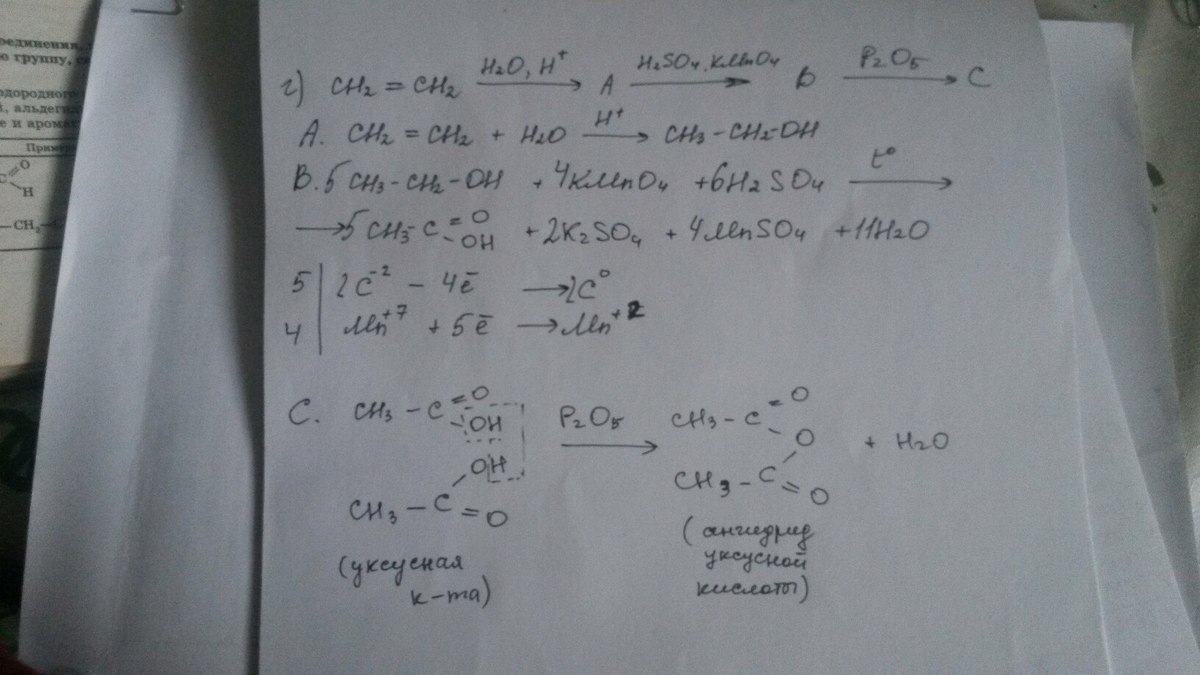 оединения,
ю группу,
одородного
альдегид
е и аромат
Приме
C=O
H
–CH₂–
г) CH₂ = CH₂ →(H₂O, H⁺) A →(H₂SO₄, KMnO₄) B →(P₂O₅) C
A. CH₂ = CH₂ + H₂O →(H⁺) CH₃ – CH₂ – OH
B. 5 CH₃ – CH₂ – OH + 4KMnO₄ + 6H₂SO₄ →(t°)
→ 5 CH₃ – C =O –OH + 2K₂SO₄ + 4MnSO₄ + 11H₂O
5 | 2C⁻² – 4ē → 2C⁰
4 | Mn⁺⁷ + 5ē → Mn⁺²
C. CH₃ – C =O –OH →(P₂O₅) CH₃ – C =O – O + H₂O
OH
CH₃ – C = O CH₃ – C = O
(уксусная
к-та)
(ангидрид
уксусной
кислоты)